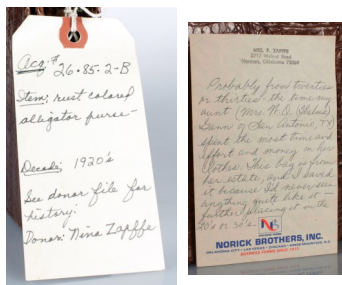 Acq. #
26.85.2-B
Item: rust colored
alligator purse-
Decade: 1920's
See donor file for
history:
Donor: Nina Zapffe
MRS. F. ZAPFFE
2717 Walnut Road
Norman, Oklahoma 73069
Probably from twenties
or thirties the time my
aunt (Mrs. W.O. (Thelma)
Dunn of San Antonio, TX)
spent the most time and
effort and money on her
clothes. This bag is from
her estate, and I saved
it because I'd never seen
anything quite like it -
further placing it in the
20's or 30's.
NB
NORICK BROTHERS, INC.
OKLAHOMA CITY
BUSINESS FORMS SINCE 1910